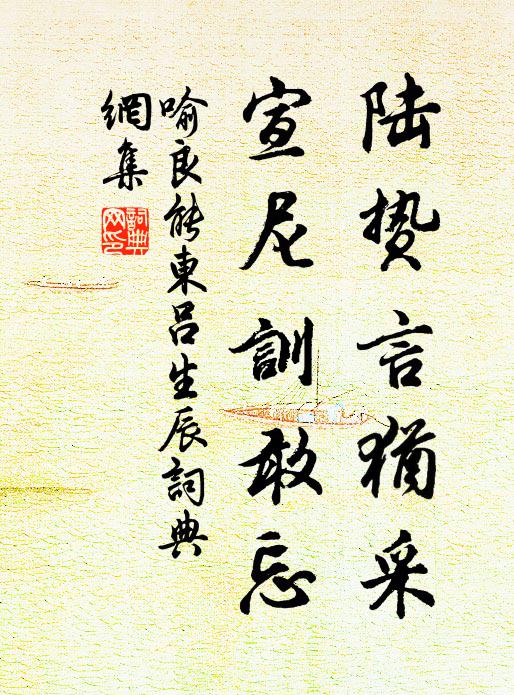 陆贽言猶采
宣尼訓敢忘
喻良能東吕生辰詞典
網集
詞典
网印